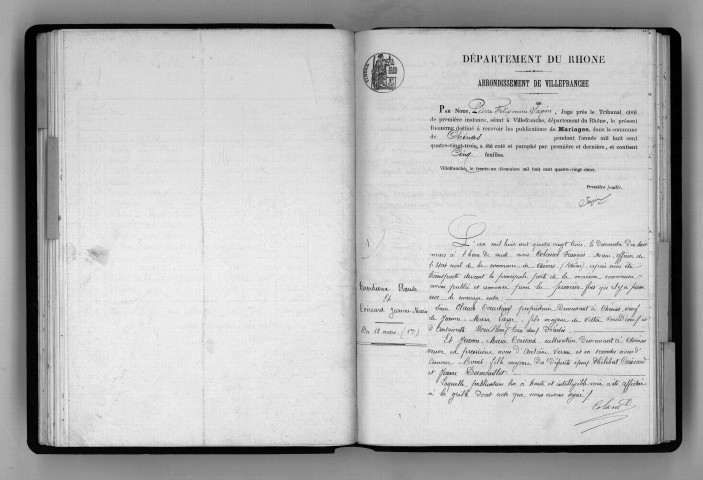 DÉPARTEMENT DU RHONE
ARRONDISSEMENT DE VILLEFRANCHE
PAR NOUS, Pierre Papin, Juge près le Tribunal civil
de première instance, séant à Villefranche, département du Rhône, le présent
destiné à recevoir les publications de Mariages, dans la commune
de Chénas pendant l'année mil huit cent
quatre-vingt-trois, a été coté et paraphé par première et dernière, et contient
Cinq feuilles.
Villefranche, le trente-un décembre mil huit cent quatre-vingt-deux.
Première feuille.
Papin
L'an mil huit cent quatre vingt trois, le Dimanche dix huit
mars à l heure de midi, nous Coland François Maire, officier de
l'Etat civil de la commune de Chénas, (Rhône) après nous être
transporté devant la principale porte de la maison commune,
avons publié et annoncé pour la première fois qu'il y a promesse
de mariage entre :
Claude
Et
Jeanne-Marie
Du 18 mars (1re)
Claude propriétaire demeurant à Chénas, veuf
de Jeanne-Marie fils majeur de
et Antoinette tous deux décédés
Et Jeanne-Marie cultivatrice demeurant à Chénas
veuve en premières noces d'Antoine et en secondes noces d
fille majeure des défunts époux Philibert
et Jeanne
Laquelle publication lue à haute et intelligible voix a été affichée
à la porte dont acte que nous avons signé.
Coland